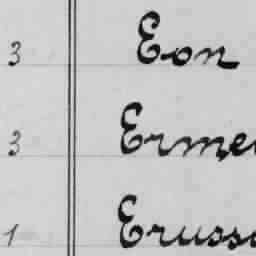 3 Eon
3 Erme
1 Eruss